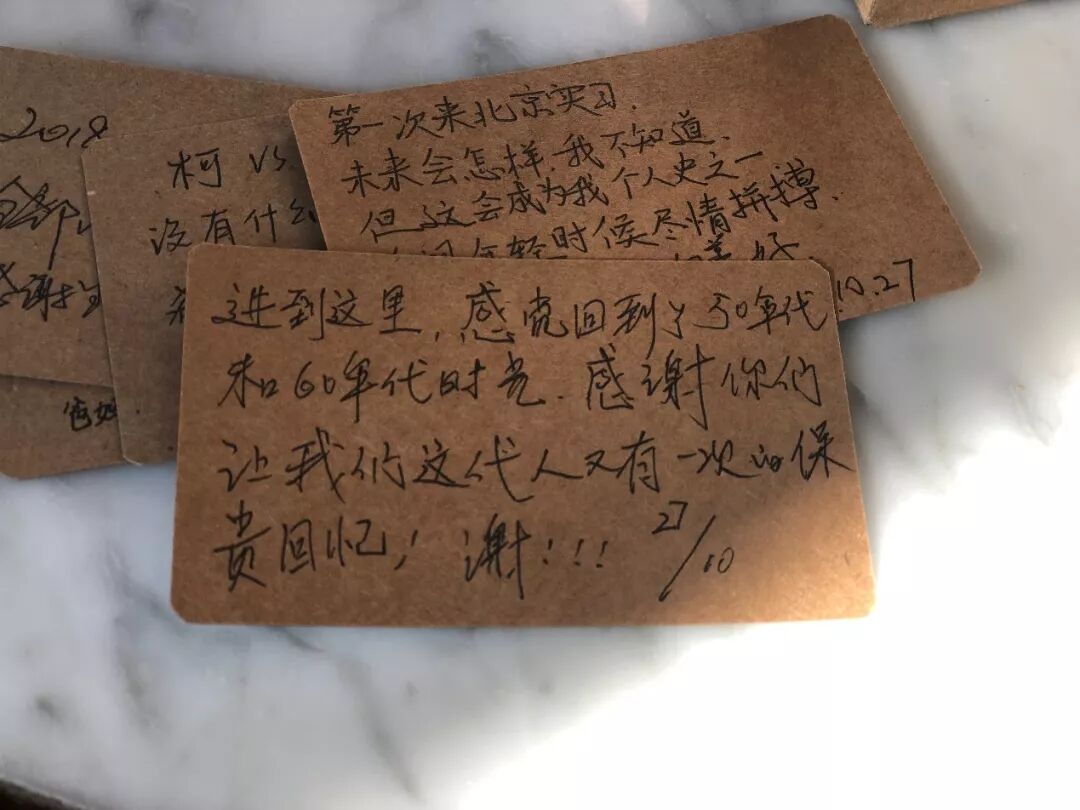 2018
柯 VS
没有什么
第一次来北京实习.
未来会怎样,我不知道.
但这会成为我个人史之一
年轻时候尽情拼搏.
10.27
进到这里,感觉回到了50年代
和60年代时光.感谢你们
让我们这代人又有一次的保
贵回忆!谢!!! 27/10